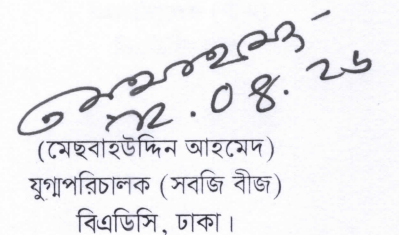 ০৪.২৬
(মেছবাহউদ্দিন আহমেদ)
যুগ্মপরিচালক (সবজি বীজ)
বিএডিসি, ঢাকা।